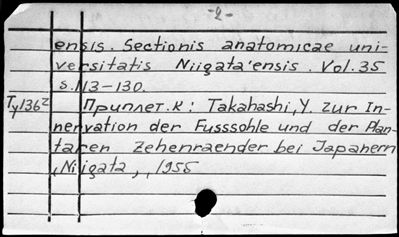 -2-
ensis. Sectionis anatomicae uni-
versitatis Niigata'ensis. Vol. 35
s. 113-130.
Ty1362 Приплет. к: Takahashi, Y. Zur In-
nervation der Fusssohle und der Plan-
taren Zehenraender bei Japanern
, Niigata, , 1955